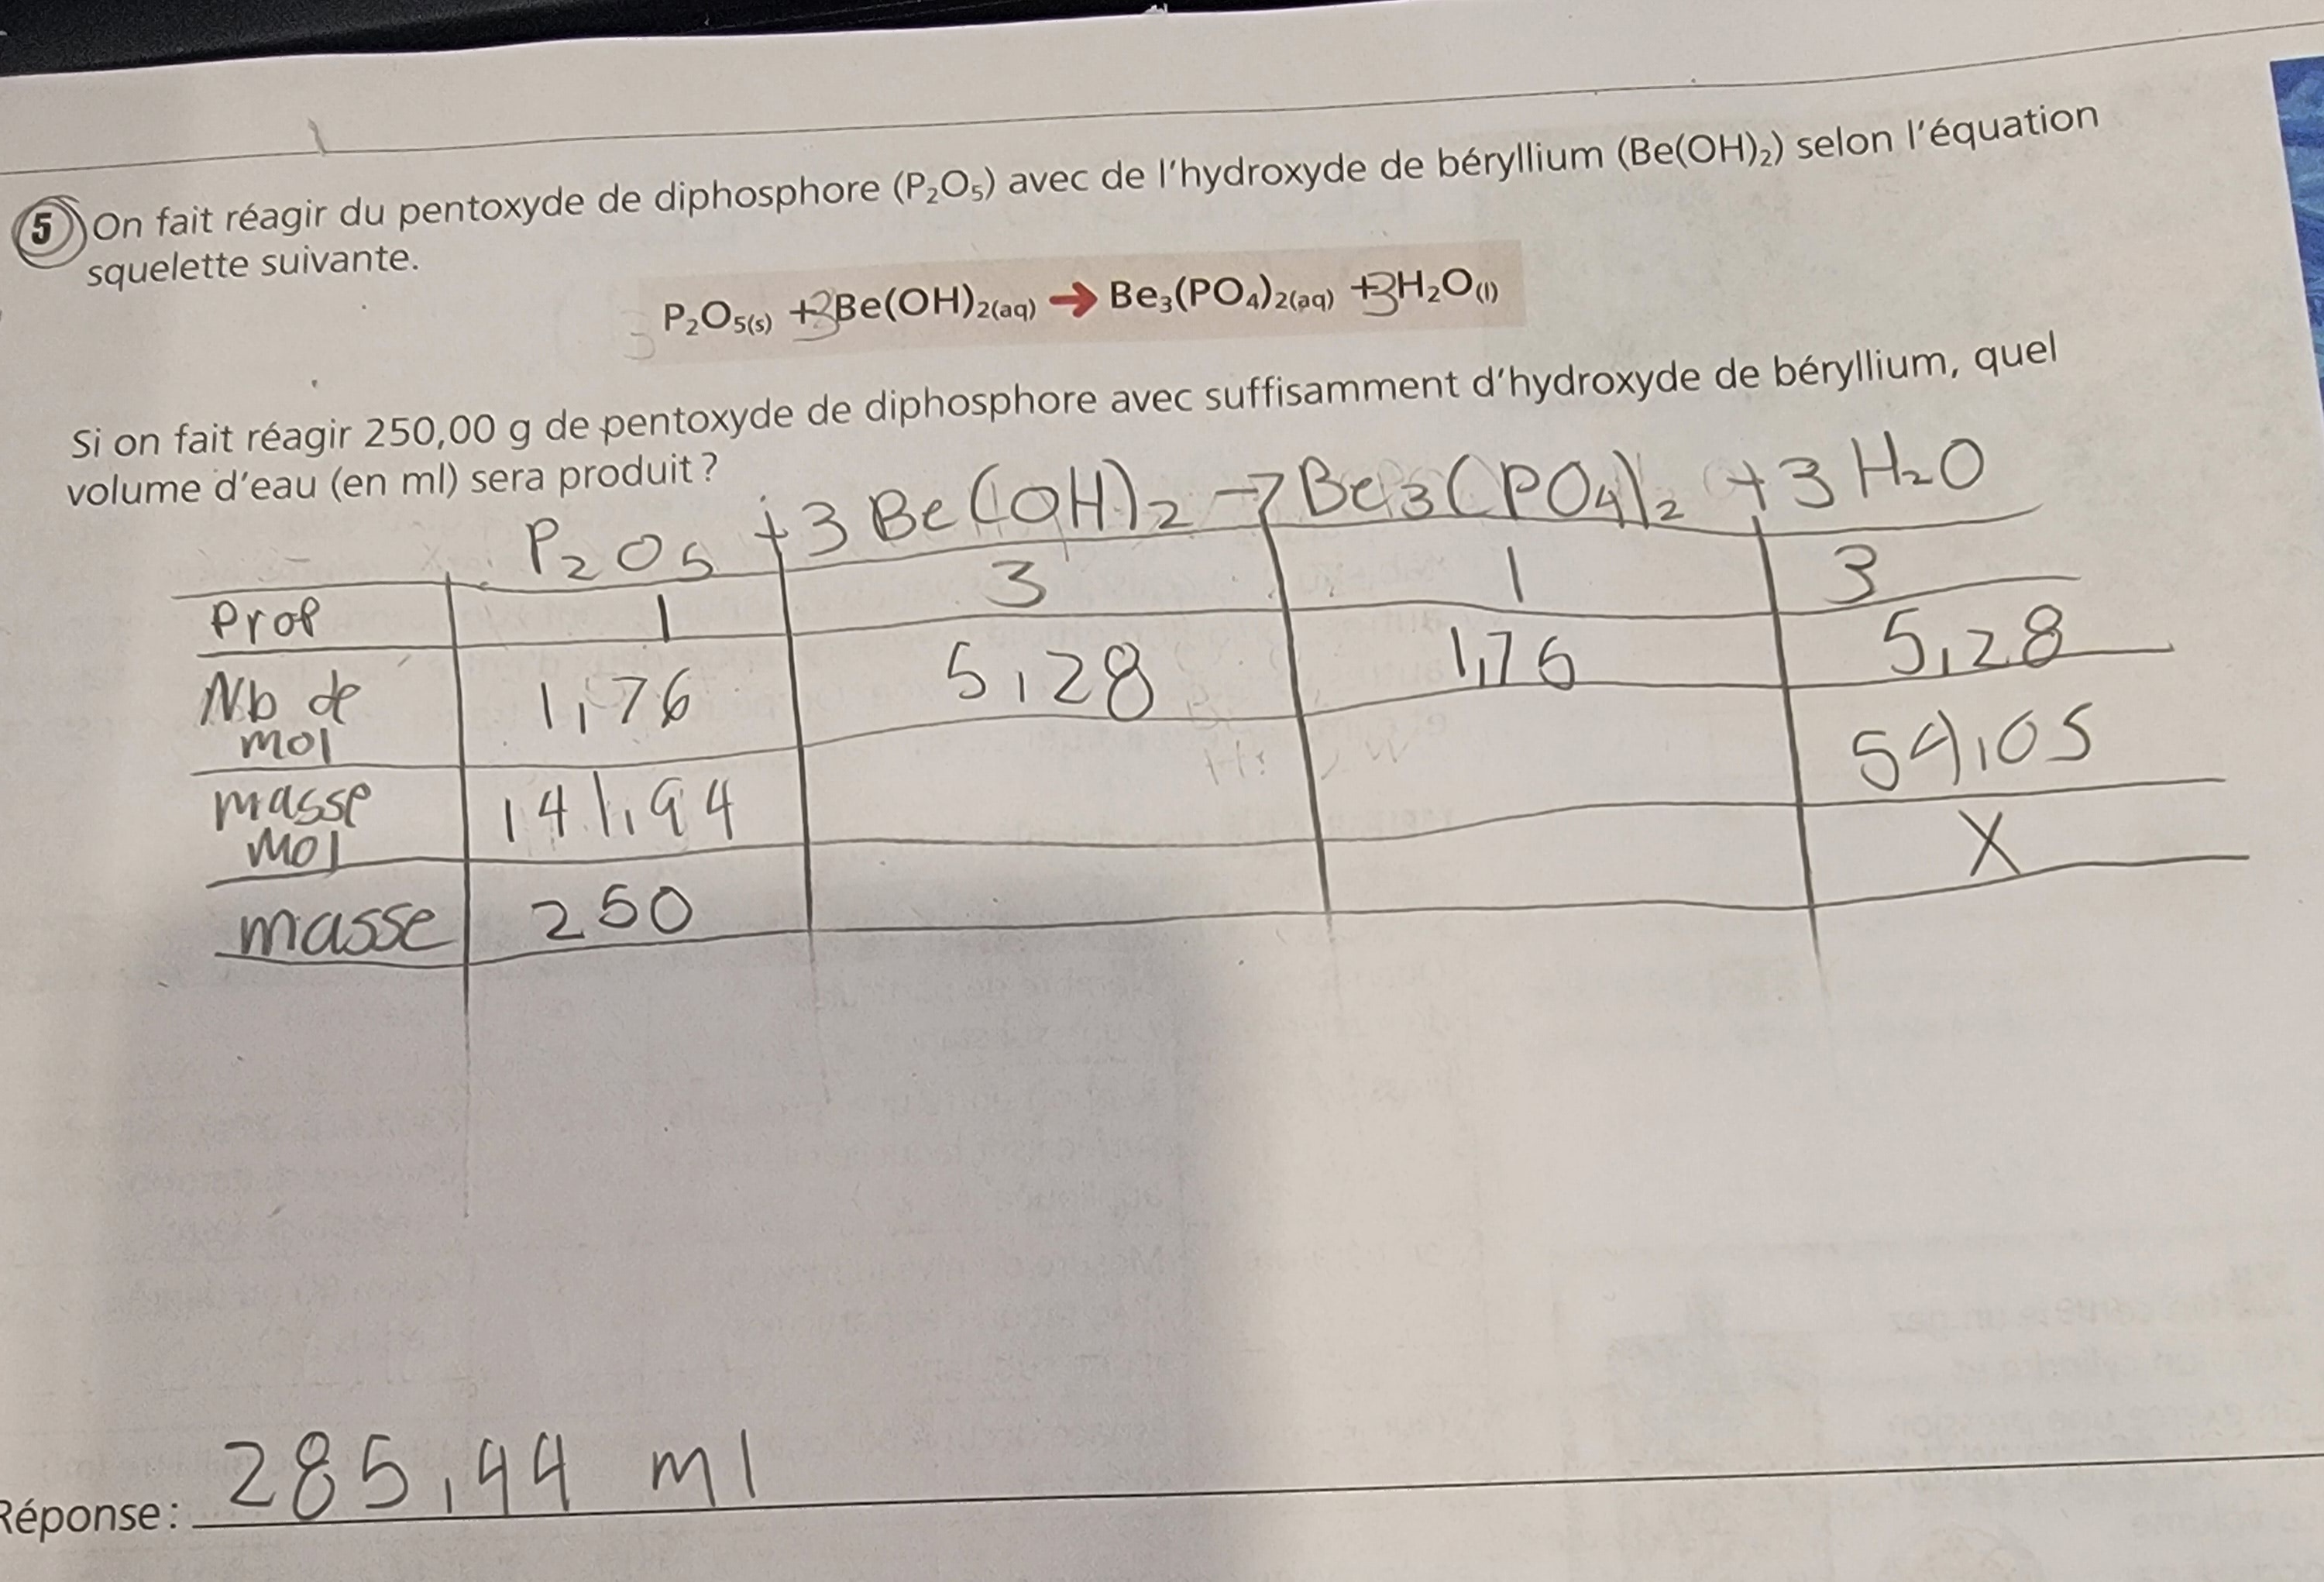 5 On fait réagir du pentoxyde de diphosphore (P₂O₅) avec de l'hydroxyde de béryllium (Be(OH)₂) selon l'équation
squelette suivante.
P₂O₅(s) + 3Be(OH)₂(aq) → Be₃(PO₄)₂(aq) + 3H₂O(l)
Si on fait réagir 250,00 g de pentoxyde de diphosphore avec suffisamment d'hydroxyde de béryllium, quel
volume d'eau (en ml) sera produit ?
P₂O₅ + 3 Be(OH)₂ → Be₃(PO₄)₂ + 3 H₂O
Prop 1 3 1 3
Nb de mol 1,76 5,28 1,76 5,28
masse mol 141,94 54,05
masse 250 X
Réponse : 285,44 ml